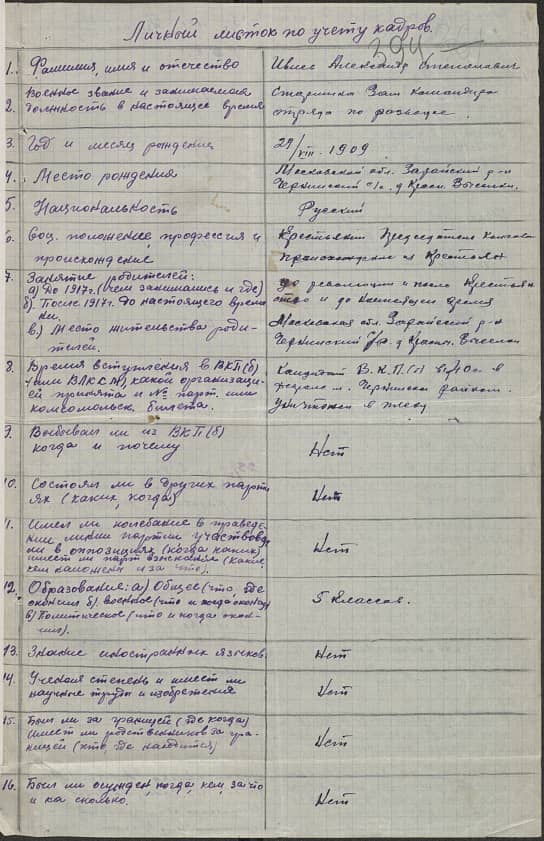 Личный листок по учету кадров.
394
1. Фамилия, имя и отчество
Александр
Военное звание и занимаемая
2. должность в настоящее время
Старшина Зам командира
отряда по разведке.
3. Год и месяц рождения
29/VIII. 1909
4. Место рождения
Московской обл. Зарайский р-н
Чернинский с/с. д Красн. Выселки.
5. Национальность
Русский
6. Соц. положение, профессия и
происхождение
Крестьянин Председатель колхоза
происхождение из Крестьян
7. Занятие родителей:
а) До 1917г. (чем занимались и где)
б) После 1917г. до настоящего време
ни.
в.) Место жительства роди-
телей.
до революции и после Крестьян
ство и до настоящего время
Московская обл. Зарайский р-н
Чернинский с/с. д Красн. Выселки
8. Время вступления в ВКП(б)
или ВЛКСМ, какой организаци-
ей принята и № парт. или
комсомольск. билета.
Кандидат В.К.П.(б) 40г. в
райком.
уничтожен в плену
9. Выбывал ли из ВКП(б)
когда и почему
Нет
10. Состоял ли в других парти
ях (каких, когда)
Нет
11. Имел ли колебание в проведе-
нии линии партии участвовал
ли в оппозициях (когда каких)
имеет ли парт взыскания (какие
кем наложены и за что).
Нет
12. Образования: а) Общее (что, где
окончил б). военное (что и когда окончил)
в) Политическое (что и когда окон-
чил).
5 классов.
13. Знание иностранных языков.
Нет
14. Ученая степень и имеет ли
научные труды и изобретения
Нет
15. Был ли за границей (где когда)
имеет ли родственников за гра-
ницей (кто, где находится)
Нет
16. Был ли осужден, когда, кем, за что
и на сколько.
Нет